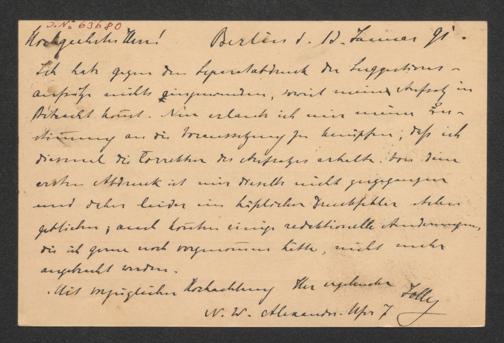 I.N. 63680
Hochgeehrter Herr! Berlin d. 13. Januar 91.
Ich habe gegen den Separatabdruck der Suggestions-
aufsätze nichts einzuwenden, soweit mein Aufsatz in
Betracht kommt. Nur erlaube ich mir meine Zu-
stimmung an die Voraussetzung zu knüpfen, daß ich
diesmal die Correktur des Aufsatzes erhalte. Von dem
ersten Abdruck ist mir dieselbe nicht zugegangen
und daher leider ein häßlicher Druckfehler stehen
geblieben; auch konnten einige redaktionelle Aenderungen,
die ich gerne noch vorgenommen hätte, nicht mehr
angebracht werden.
Mit vorzüglicher Hochachtung Ihr ergebenster Jolly
N. W. Alexander-Ufer 7